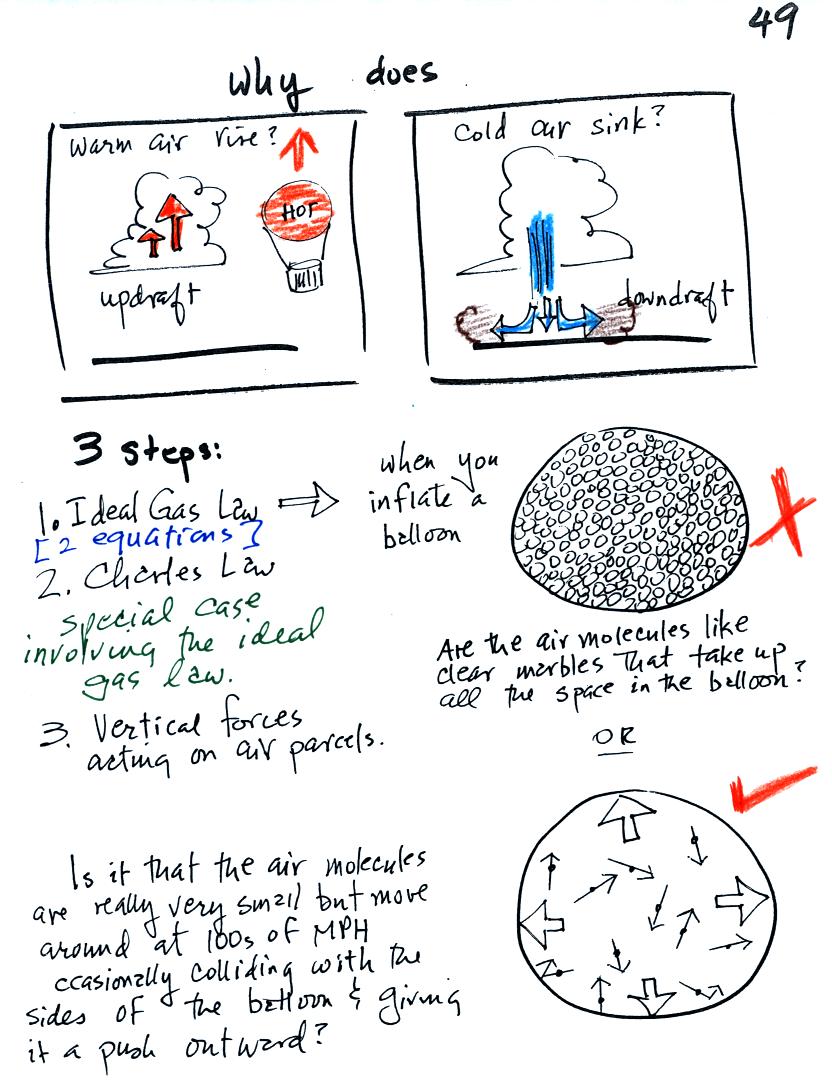 49
Why does
Warm air rise?
HOT
updraft
Cold air sink?
downdraft
3 steps:
1. Ideal Gas Law
[2 equations]
2. Charles Law
special case
involving the ideal
gas law.
3. Vertical forces
acting on air parcels.
when you
inflate a
balloon
Are the air molecules like
clear marbles that take up
all the space in the balloon?
OR
Is it that the air molecules
are really very small but move
around at 100s of MPH
ccasionally colliding with the
sides of the balloon & giving
it a push outward?